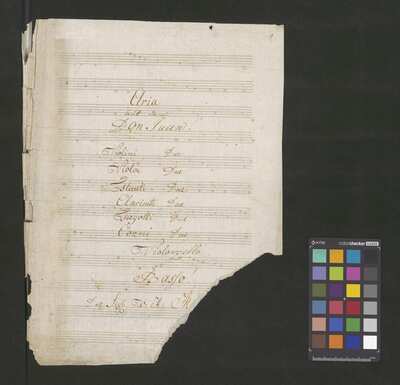 Aria
Don Juan.
Violini Due
Viole Due
Flauti Due
Clarinetti Due
Fagotti Due
Corni Due
Violoncello
Basso
Del Sigr
colorchecker